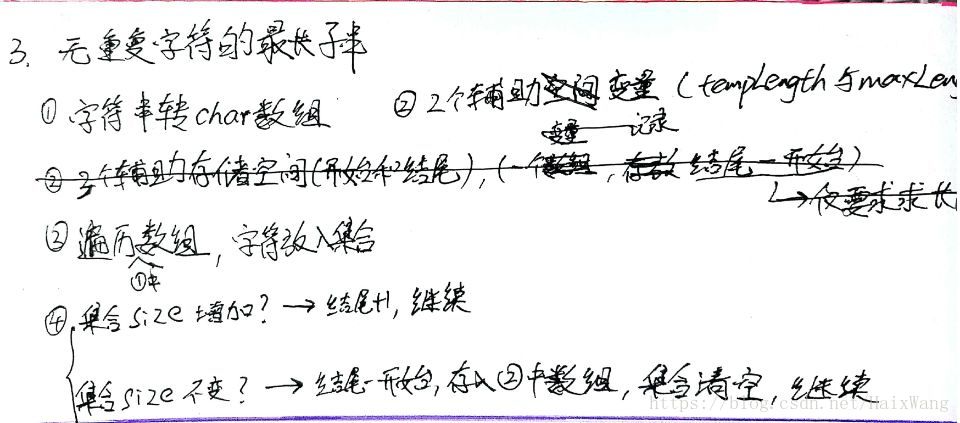 3. 无重复字符的最长子串
① 字符串转char数组 ② 2个辅助空间变量 (tempLength与maxLeng
变量 记录
② 3个辅助存储空间(开始和结尾), (一个数组, 存放结尾-开始)
↳仅要求求长
③ 遍历数组, 字符放入集合
①中
④ 集合size增加? → 结尾+1, 继续
集合size不变? → 结尾-开始, 存入②中数组, 集合清空, 继续
https://blog.csdn.net/HaixWang